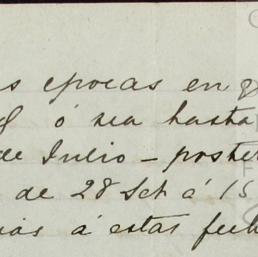 s epocas en q
ó sea hasta
de Julio – poster
de 28 Set á 15
á estas fech